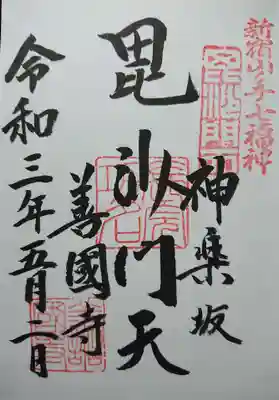 新宿山ノ手七福神
神楽坂
毘沙門天
善國寺
令和三年五月二日